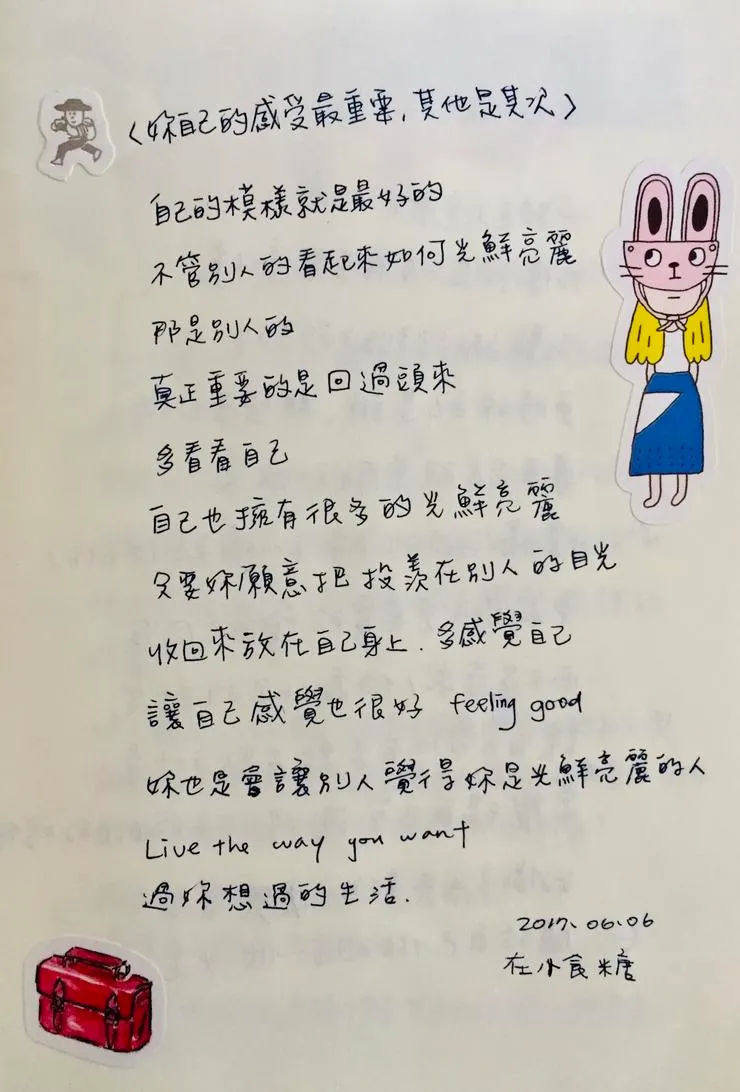 〈妳自己的感受最重要,其他是其次〉
自己的模樣就是最好的
不管別人的看起來如何光鮮亮麗
那是別人的
真正重要的是回過頭來
多看看自己
自己也擁有很多的光鮮亮麗
只要妳願意把投羨在別人的目光
收回來放在自己身上.多感覺自己
讓自己感覺也很好 feeling good
妳也是會讓別人覺得妳是光鮮亮麗的人
Live the way you want
過妳想過的生活.
2017.06.06
在小食糖